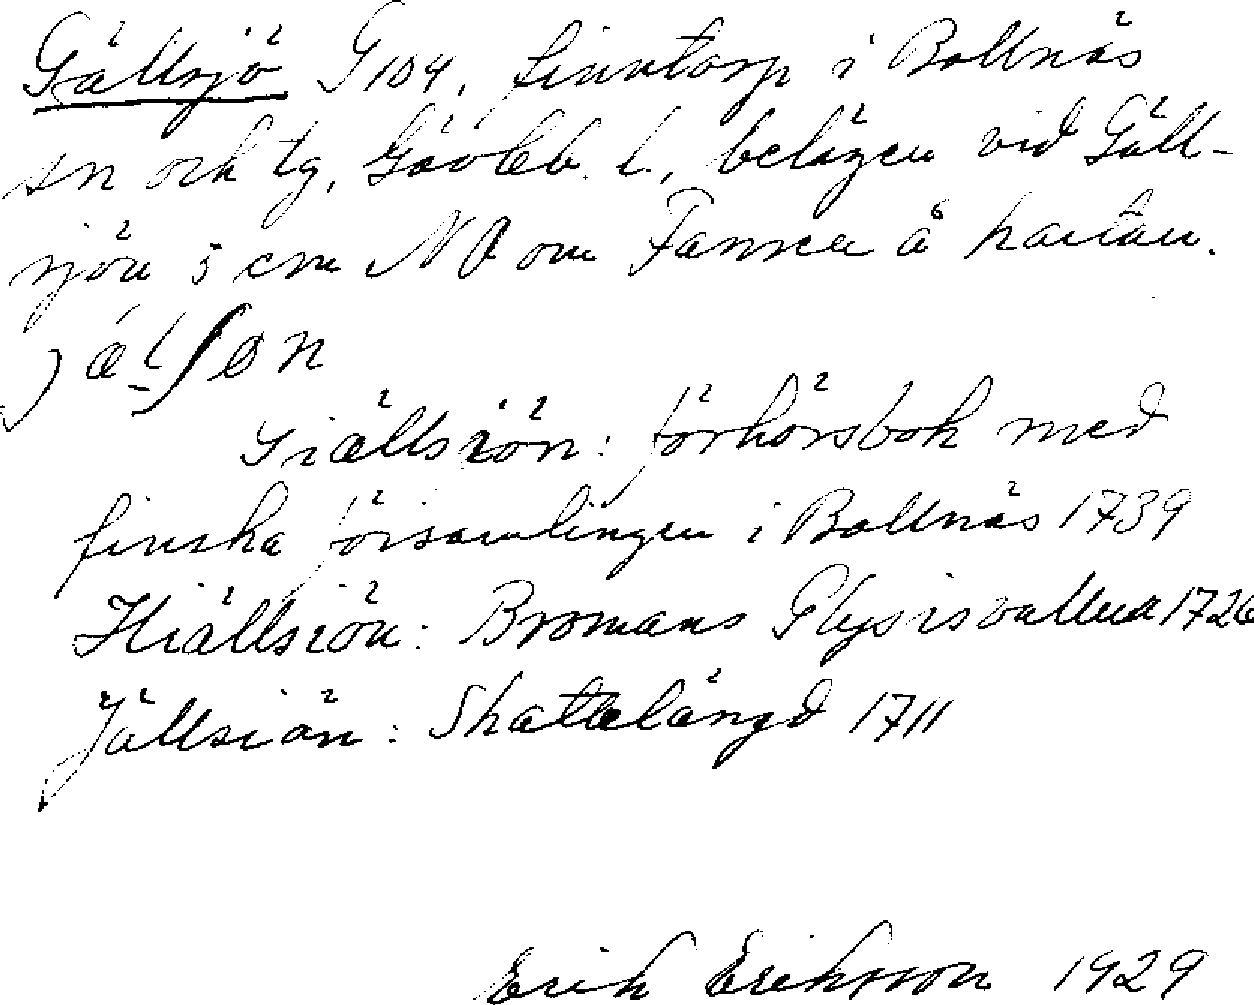 Gällsjö G 104, finntorp i Bollnäs
sn och tg, Gävleb. l., belägen vid Gäll-
sjön 5 cm NV om Fannea å kartan.
Giällsiön: förhörsbok med
finska församlingen i Bollnäs 1739
Hiällsiön: Bromans Glysisvallur 1726
Jällsiön: Skattelängd 1711
Erik Eriksson 1929